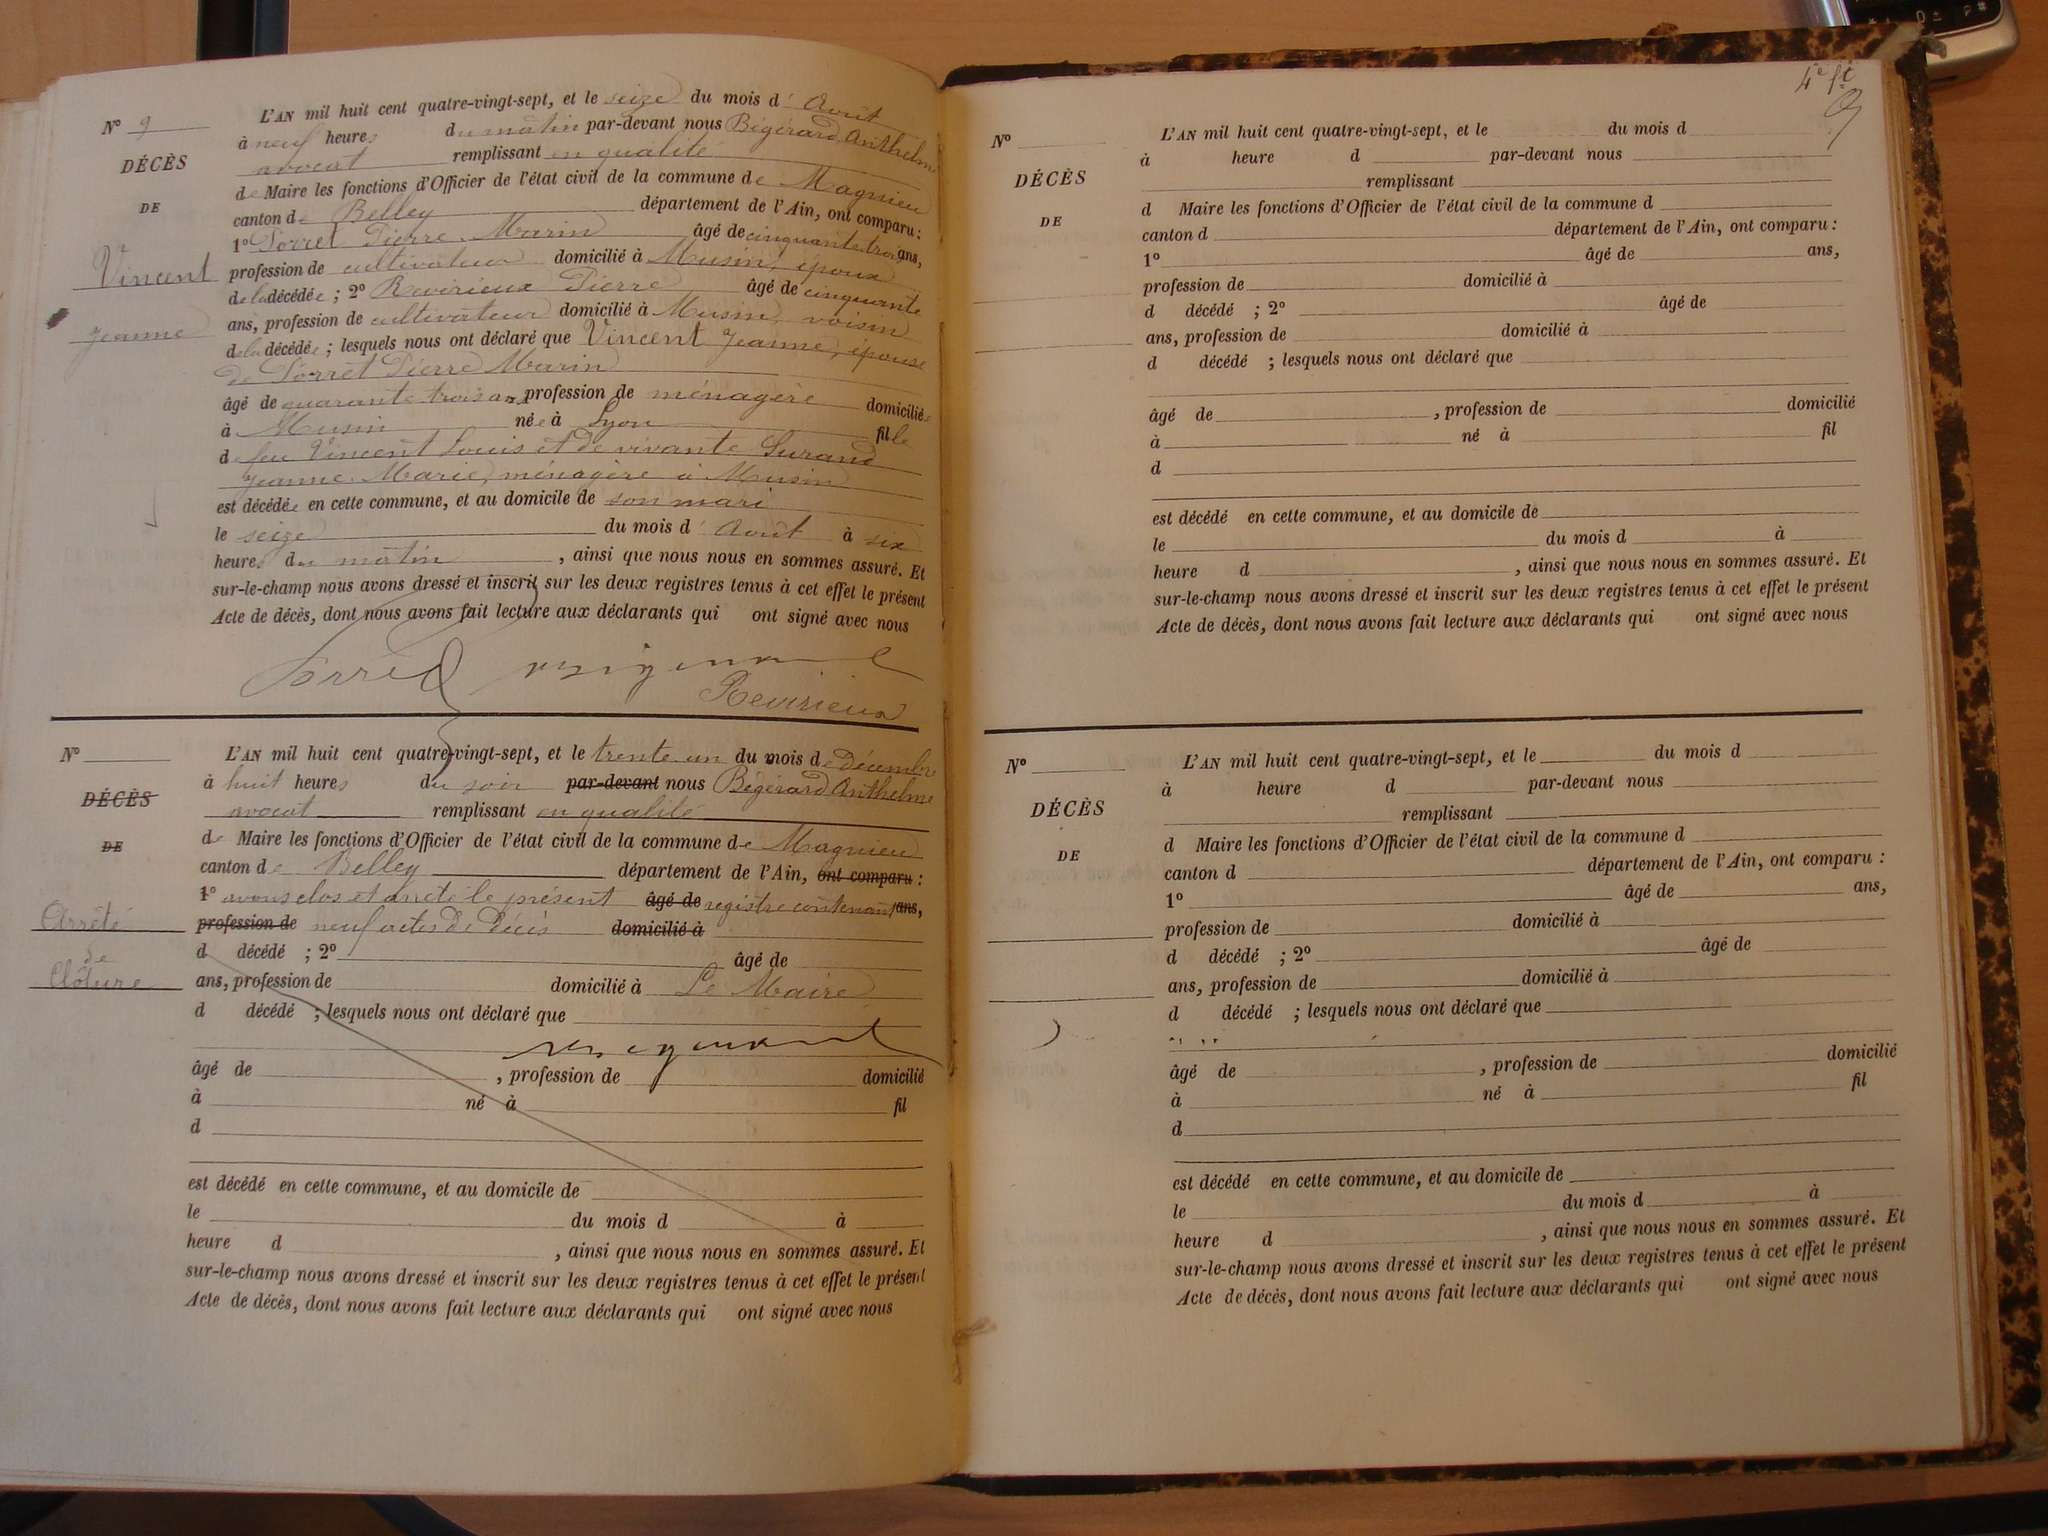 N° 9
DÉCÈS
DE
Vincent
Jeanne
L'AN mil huit cent quatre-vingt-sept, et le seize du mois d' Août
à neuf heures du matin par-devant nous Bégérard Anthelme
avocat remplissant en qualité
de Maire les fonctions d'Officier de l'état civil de la commune de Magnieu
canton de Belley département de l'Ain, ont comparu :
1° Sorret Pierre Marin âgé de cinquante trois ans,
profession de cultivateur domicilié à Musin, époux
de la décédée ; 2° Revirieux Pierre âgé de cinquante
ans, profession de cultivateur domicilié à Musin, voisin
de la décédée ; lesquels nous ont déclaré que Vincent Jeanne, épouse
de Sorret Pierre Marin
âgé de quarante trois ans, profession de ménagère domiciliée
à Musin née à Lyon fille
de feu Vincent Louis et de vivante Surand
Jeanne Marie, ménagère à Musin
est décédée en cette commune, et au domicile de son mari
le seize du mois d' Août à six
heures du matin, ainsi que nous nous en sommes assuré. Et
sur-le-champ nous avons dressé et inscrit sur les deux registres tenus à cet effet le présent
Acte de décès, dont nous avons fait lecture aux déclarants qui ont signé avec nous
Sorret
Revirieux
N°
DÉCÈS
DE
Arrêté
de
Clôture
L'AN mil huit cent quatre-vingt-sept, et le trente un du mois de Décembre
à huit heures du soir par-devant nous Bégérard Anthelme
avocat remplissant en qualité
de Maire les fonctions d'Officier de l'état civil de la commune de Magnieu
canton de Belley département de l'Ain, ont comparu :
1° avons clos et arrêté le présent âgé de registre contenant ans,
profession de neuf actes de décès domicilié à
d décédé ; 2° âgé de
ans, profession de domicilié à Le Maire
d décédé ; lesquels nous ont déclaré que
âgé de , profession de domicilié
à né à fil
d
est décédé en cette commune, et au domicile de
le du mois d à
heure d , ainsi que nous nous en sommes assuré. Et
sur-le-champ nous avons dressé et inscrit sur les deux registres tenus à cet effet le présent
Acte de décès, dont nous avons fait lecture aux déclarants qui ont signé avec nous
N°
DÉCÈS
DE
L'AN mil huit cent quatre-vingt-sept, et le du mois d
à heure d par-devant nous
remplissant
d Maire les fonctions d'Officier de l'état civil de la commune d
canton d département de l'Ain, ont comparu :
1° âgé de ans,
profession de domicilié à
d décédé ; 2° âgé de
ans, profession de domicilié à
d décédé ; lesquels nous ont déclaré que
âgé de , profession de domicilié
à né à fil
d
est décédé en cette commune, et au domicile de
le du mois d à
heure d , ainsi que nous nous en sommes assuré. Et
sur-le-champ nous avons dressé et inscrit sur les deux registres tenus à cet effet le présent
Acte de décès, dont nous avons fait lecture aux déclarants qui ont signé avec nous
N°
DÉCÈS
DE
L'AN mil huit cent quatre-vingt-sept, et le du mois d
à heure d par-devant nous
remplissant
d Maire les fonctions d'Officier de l'état civil de la commune d
canton d département de l'Ain, ont comparu :
1° âgé de ans,
profession de domicilié à
d décédé ; 2° âgé de
ans, profession de domicilié à
d décédé ; lesquels nous ont déclaré que
âgé de , profession de domicilié
à né à fil
d
est décédé en cette commune, et au domicile de
le du mois d à
heure d , ainsi que nous nous en sommes assuré. Et
sur-le-champ nous avons dressé et inscrit sur les deux registres tenus à cet effet le présent
Acte de décès, dont nous avons fait lecture aux déclarants qui ont signé avec nous